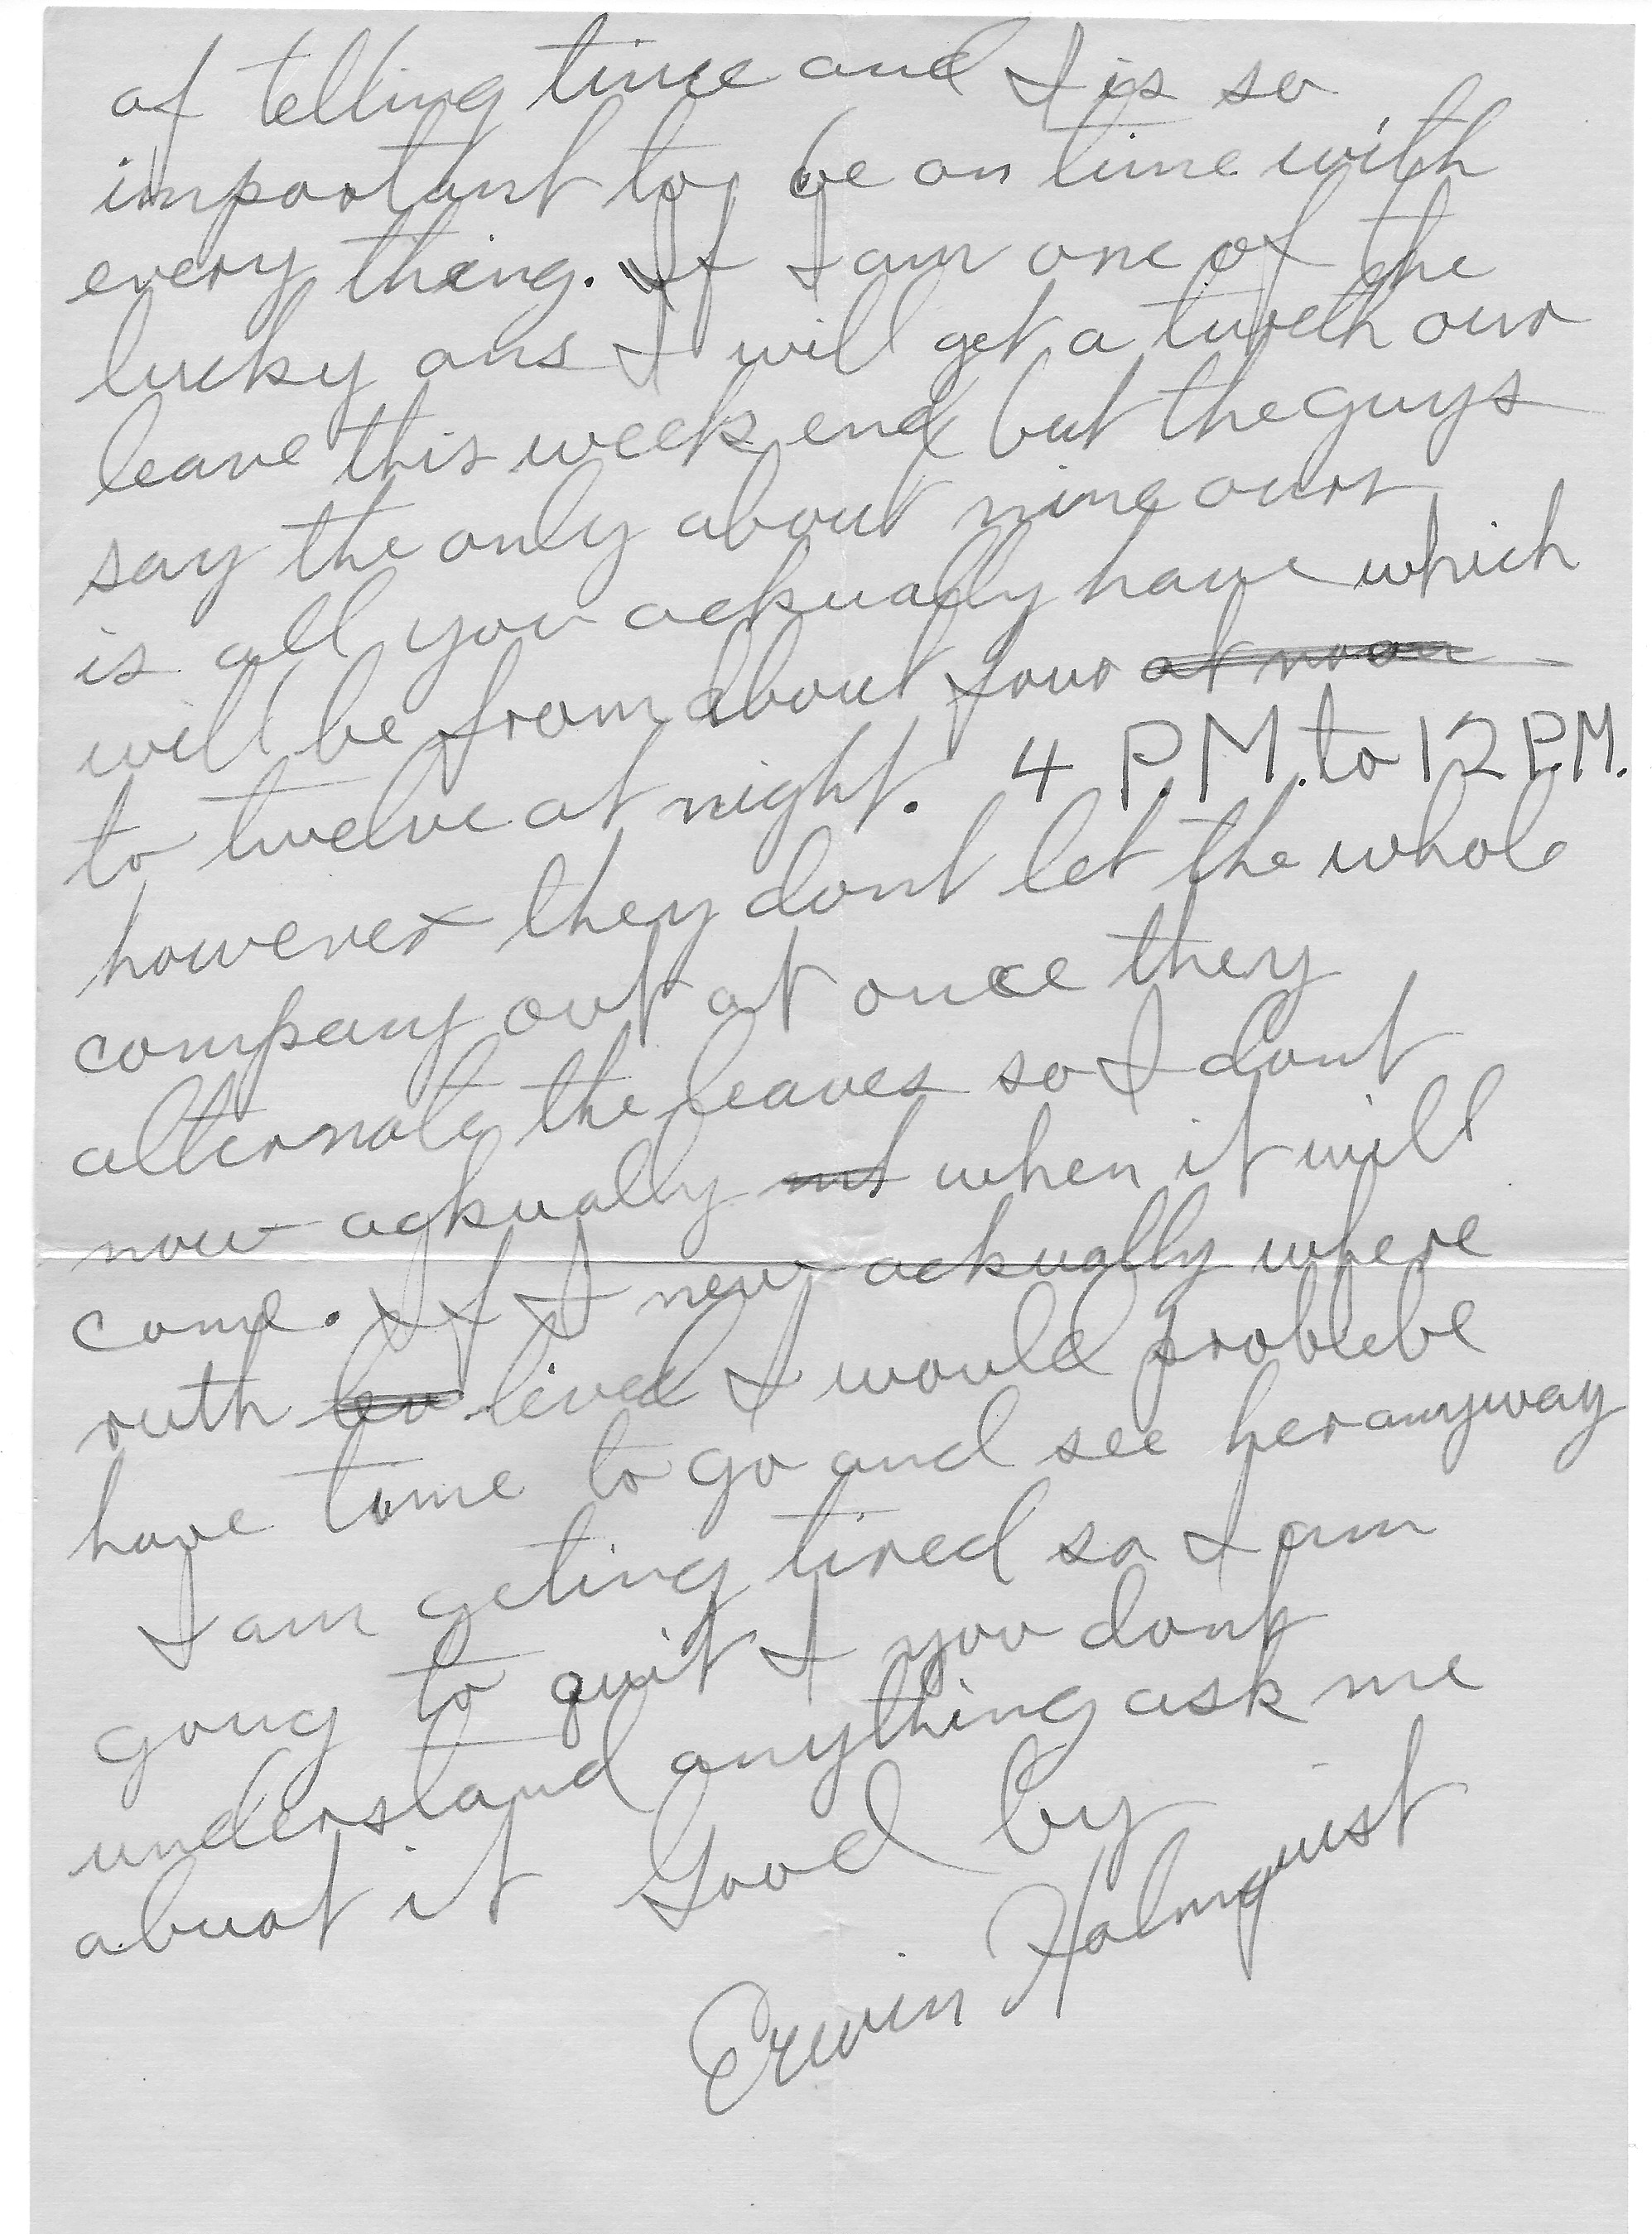 of telling time and I is so
important to be on time with
every thing. If I am one of the
lucky ons I will get a twelth our
leave this week end but the guys
say the only about nine ours
is all you ackually have which
will be from about four at noon
to twelve at night. 4 P.M. to 12 P.M.
however they dont let the whole
company out at once they
alternate the leaves so I dont
now ackually when it will
come. If I new ackually where
ruth lived I would problebe
have time to go and see her anyway
I am geting tired so I am
gong to quit I you dont
understand anything ask me
abuot it Good by
Erwin Holmquist